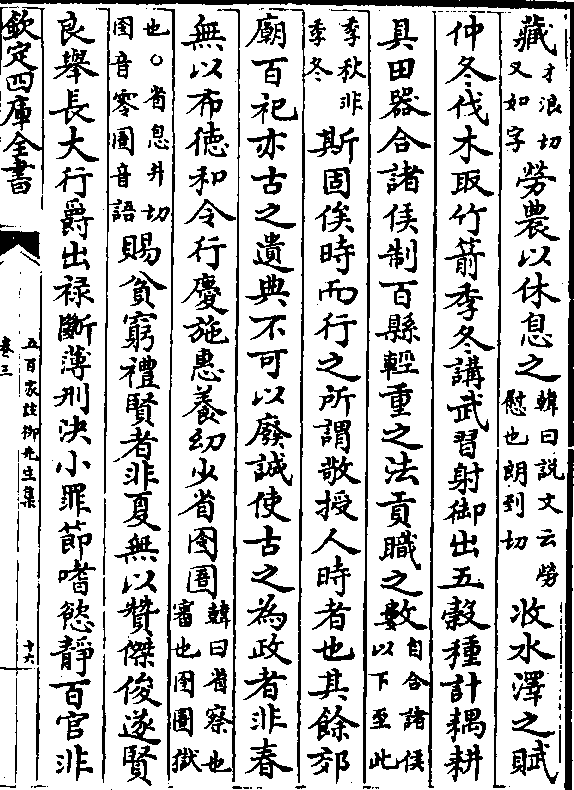 藏才浪切又如字勞農以休息之韓曰説文云勞慰也朗到切收水澤之賦
仲冬伐木取竹箭季冬講武習射御出五穀種計耦耕
具田器合諸侯制百縣輕重之法貢職之數自合諸侯以下至此
季秋非季冬斯固俟時而行之所謂敬授人時者也其餘郊
廟百祀亦古之遺典不可以廢誠使古之為政者非春
無以布徳和令行慶施惠養幼少省囹圄韓曰省察也審也囹圄獄
也○省息井切囹音零圄音語賜貧窮禮賢者非夏無以贊傑俊遂賢
良舉長大行爵出禄斷薄刑决小罪節嗜慾靜百官非
欽定四庫全書
五百家註柳先生集
卷三
十六